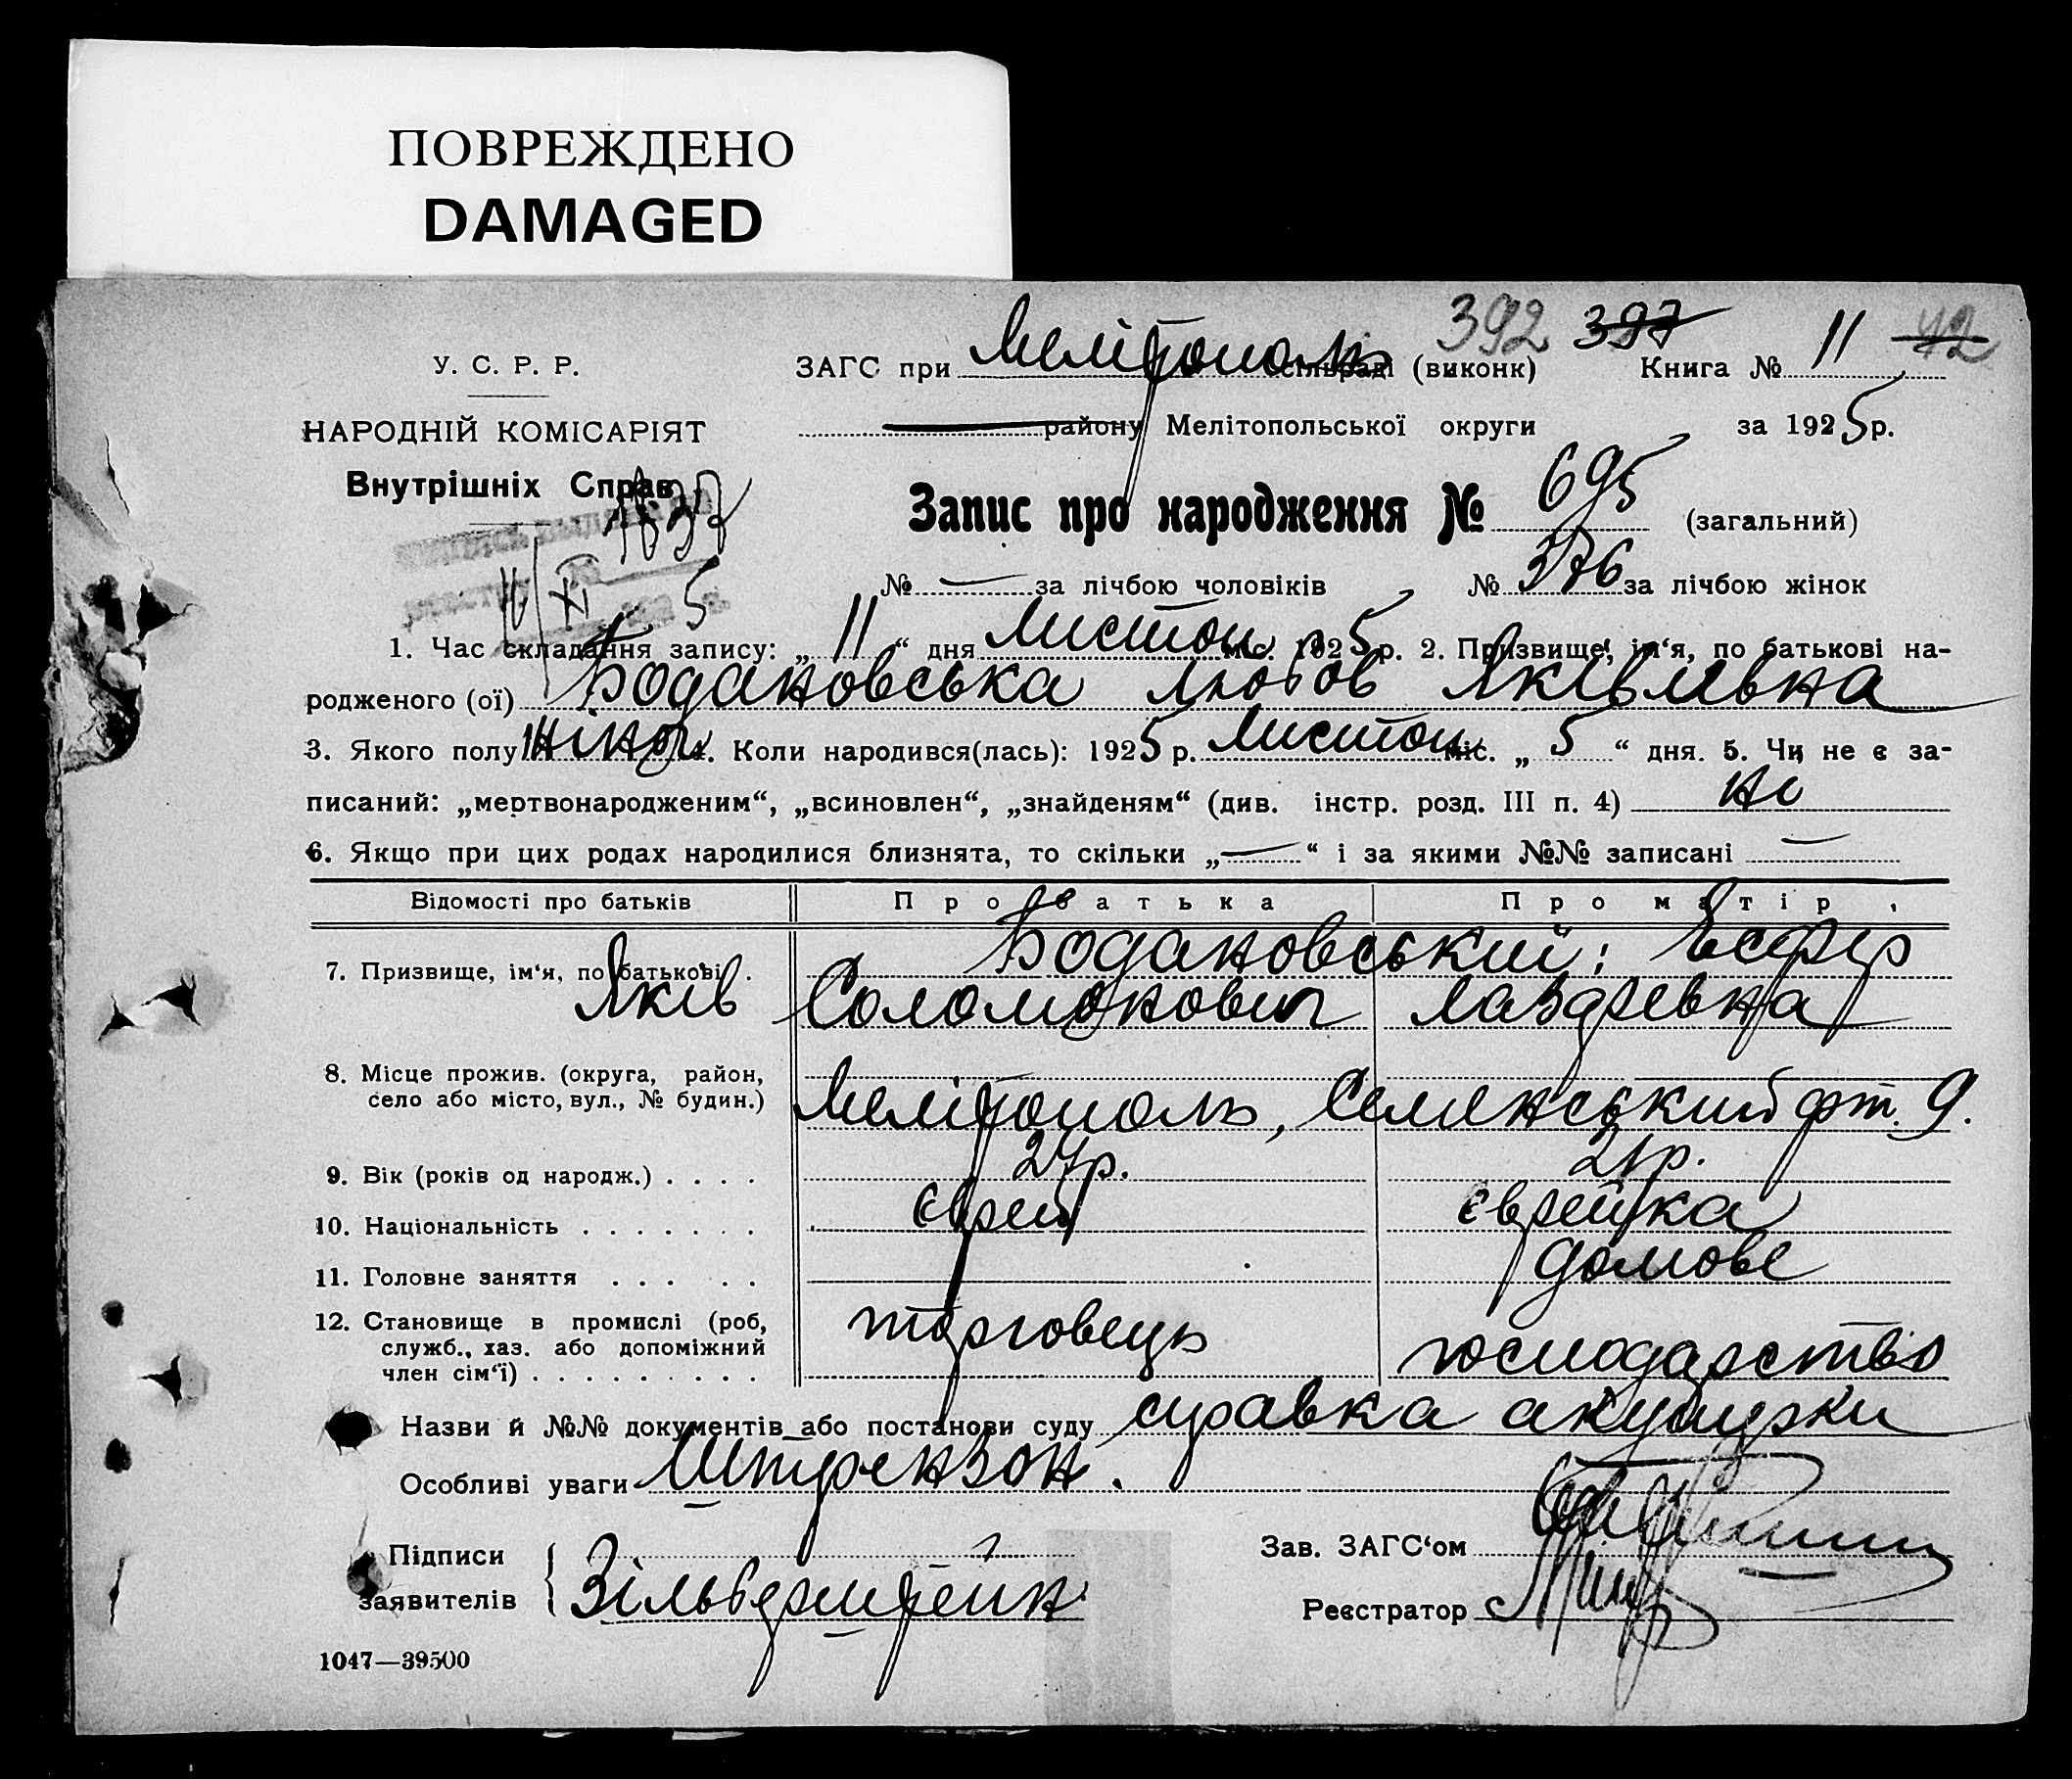 ПОВРЕЖДЕНО
DAMAGED
392 397
У. С. Р. Р. ЗАГС при Мелітополь сільраді (виконк) Книга № 11 42
НАРОДНІЙ КОМІСАРІЯТ району Мелітопольської округи за 1925 р.
Внутрішніх Справ
Запис про народження № 695 (загальний)
№ — за лічбою чоловіків № 376 за лічбою жінок
1. Час складання запису: „ 11 “ дня Листоп міс. 1925 р. 2. Призвище, ім‘я, по батькові на-
родженого (ої) Богдановська Любов Яківлівна
3. Якого полу жіноч 4. Коли народився(лась): 1925 р. Листоп міс. „ 5 “ дня. 5. Чи не є за-
писаний: „мертвонародженим“, „всиновлен“, „знайденям“ (див. інстр. розд. III п. 4) не
6. Якщо при цих родах народилися близнята, то скільки „—“ і за якими №№ записані —
Відомості про батьків Про батька Про матір
7. Призвище, ім‘я, по батькові Богдановський: Есфір
Яків Соломонович Лазаревна
8. Місце прожив. (округа, район,
село або місто, вул., № будин.) Мелітополь, Семенський 9.
9. Вік (років од народж.) 27р. 21р.
10. Національність єврей єврейка
11. Головне заняття домове
12. Становище в промислі (роб, торговець господарство
служб., хаз. або допоміжний
член сім‘ї)
Назви й №№ документів або постанови суду справка акушерки
Особливі уваги Штрензон.
Підписи Зав. ЗАГС‘ом
заявителів Зільберштейн Реєстратор
1047—39500